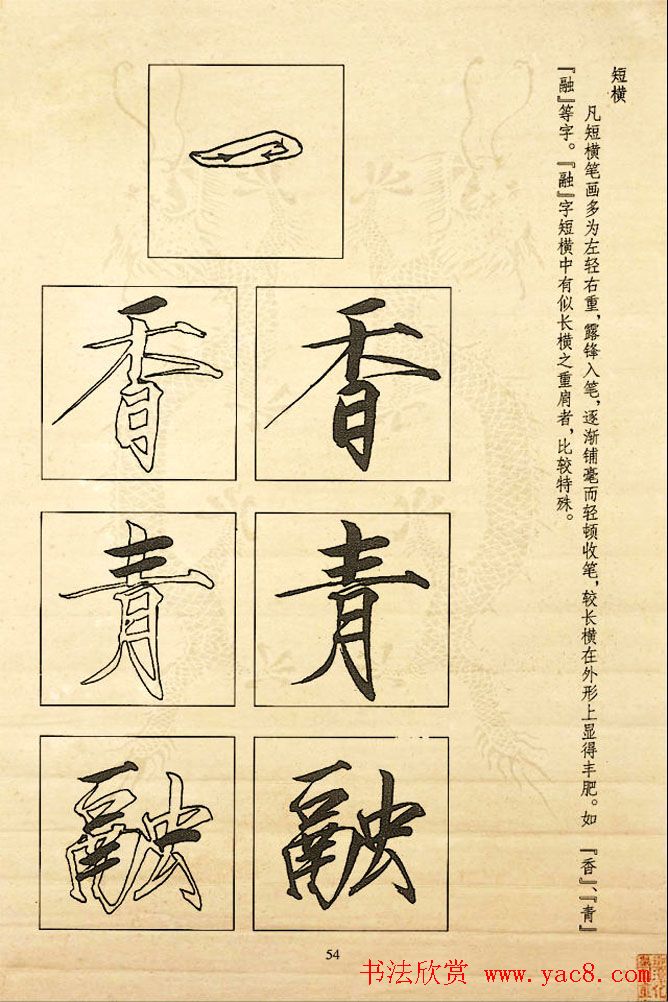 短横
凡短横笔画多为左轻右重，露锋入笔，逐渐铺毫而轻顿收笔，较长横在外形上显得丰肥。如『香』、『青』
『融』等字。『融』字短横中有似长横之重肩者，比较特殊。
香 香
青 青
融 融
54
书法欣赏 www.yac8.com